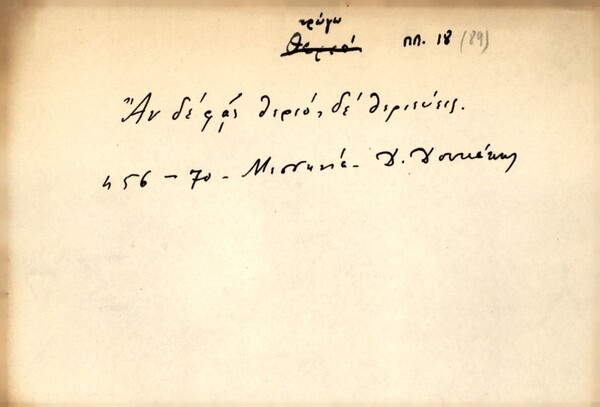 τρώγω
θεριό πλ. 18 (89)
Ἂν δέ φᾷς θεριό, δέ θεριεύεις.
456 - 70 - Μεσσηνία - Δ. Δουκάκης